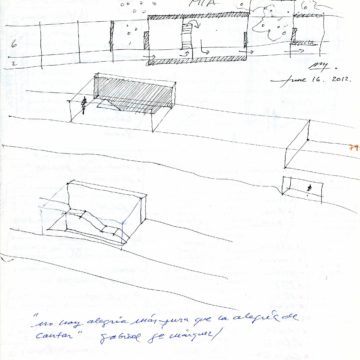 MIA
6
2
June 16. 2012.
79
"no hay alegría más pura que la alegría de
cantar" gabriel ga márquez/